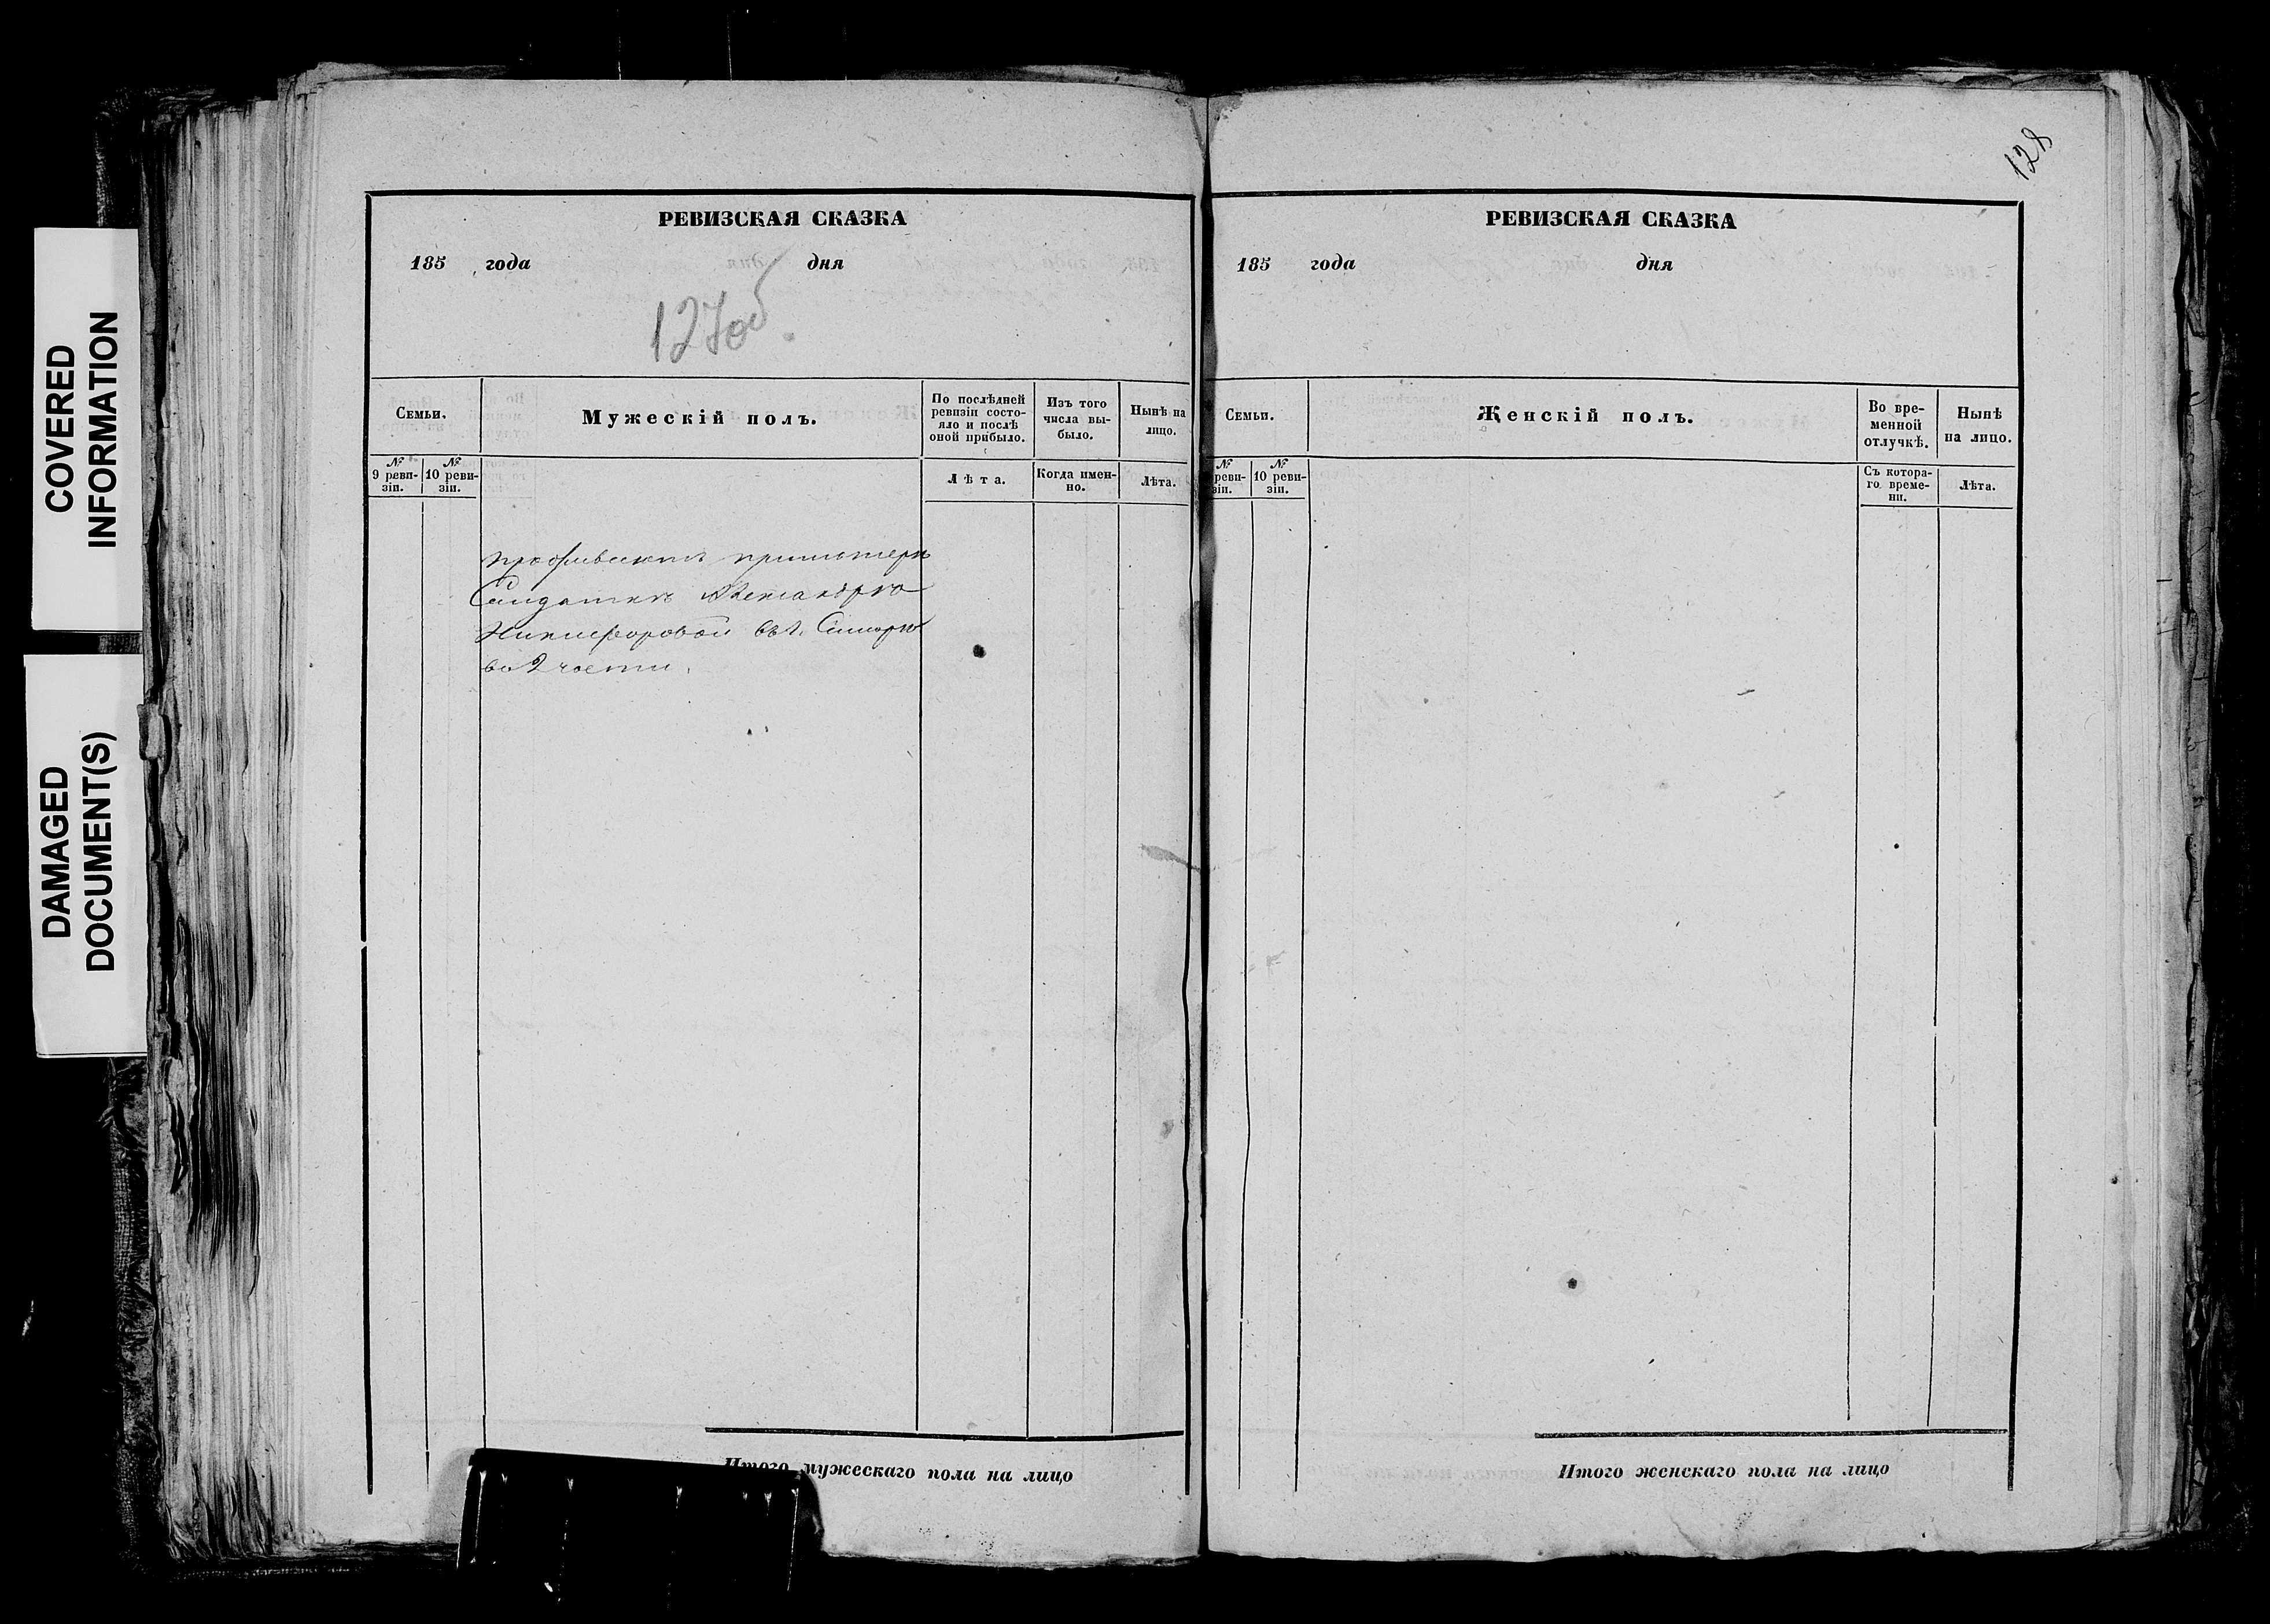 COVERED
INFORMATION
DAMAGED
DOCUMENT(S)
РЕВИЗСКАЯ СКАЗКА
185 года дня
127об.
Семьи.
Мужескій полъ.
По послѣдней
ревизіи состо-
яло и послѣ
оной прибыло.
Изъ того
числа вы-
было.
Нынѣ на
лицо.
№
9 реви-
зіи.
№
10 реви-
зіи.
Лѣта.
Когда имен-
но.
Лѣта.
при матери
Солдатки Александра
Никифоровой
во 2 части.
Итого мужескаго пола на лицо
128
РЕВИЗСКАЯ СКАЗКА
185 года дня
Семьи.
Женскій полъ.
Во вре-
менной
отлучкѣ.
Нынѣ
на лицо.
№
реви-
зіи.
№
10 реви-
зіи.
Съ котора-
го време-
ни.
Лѣта.
Итого женскаго пола на лицо